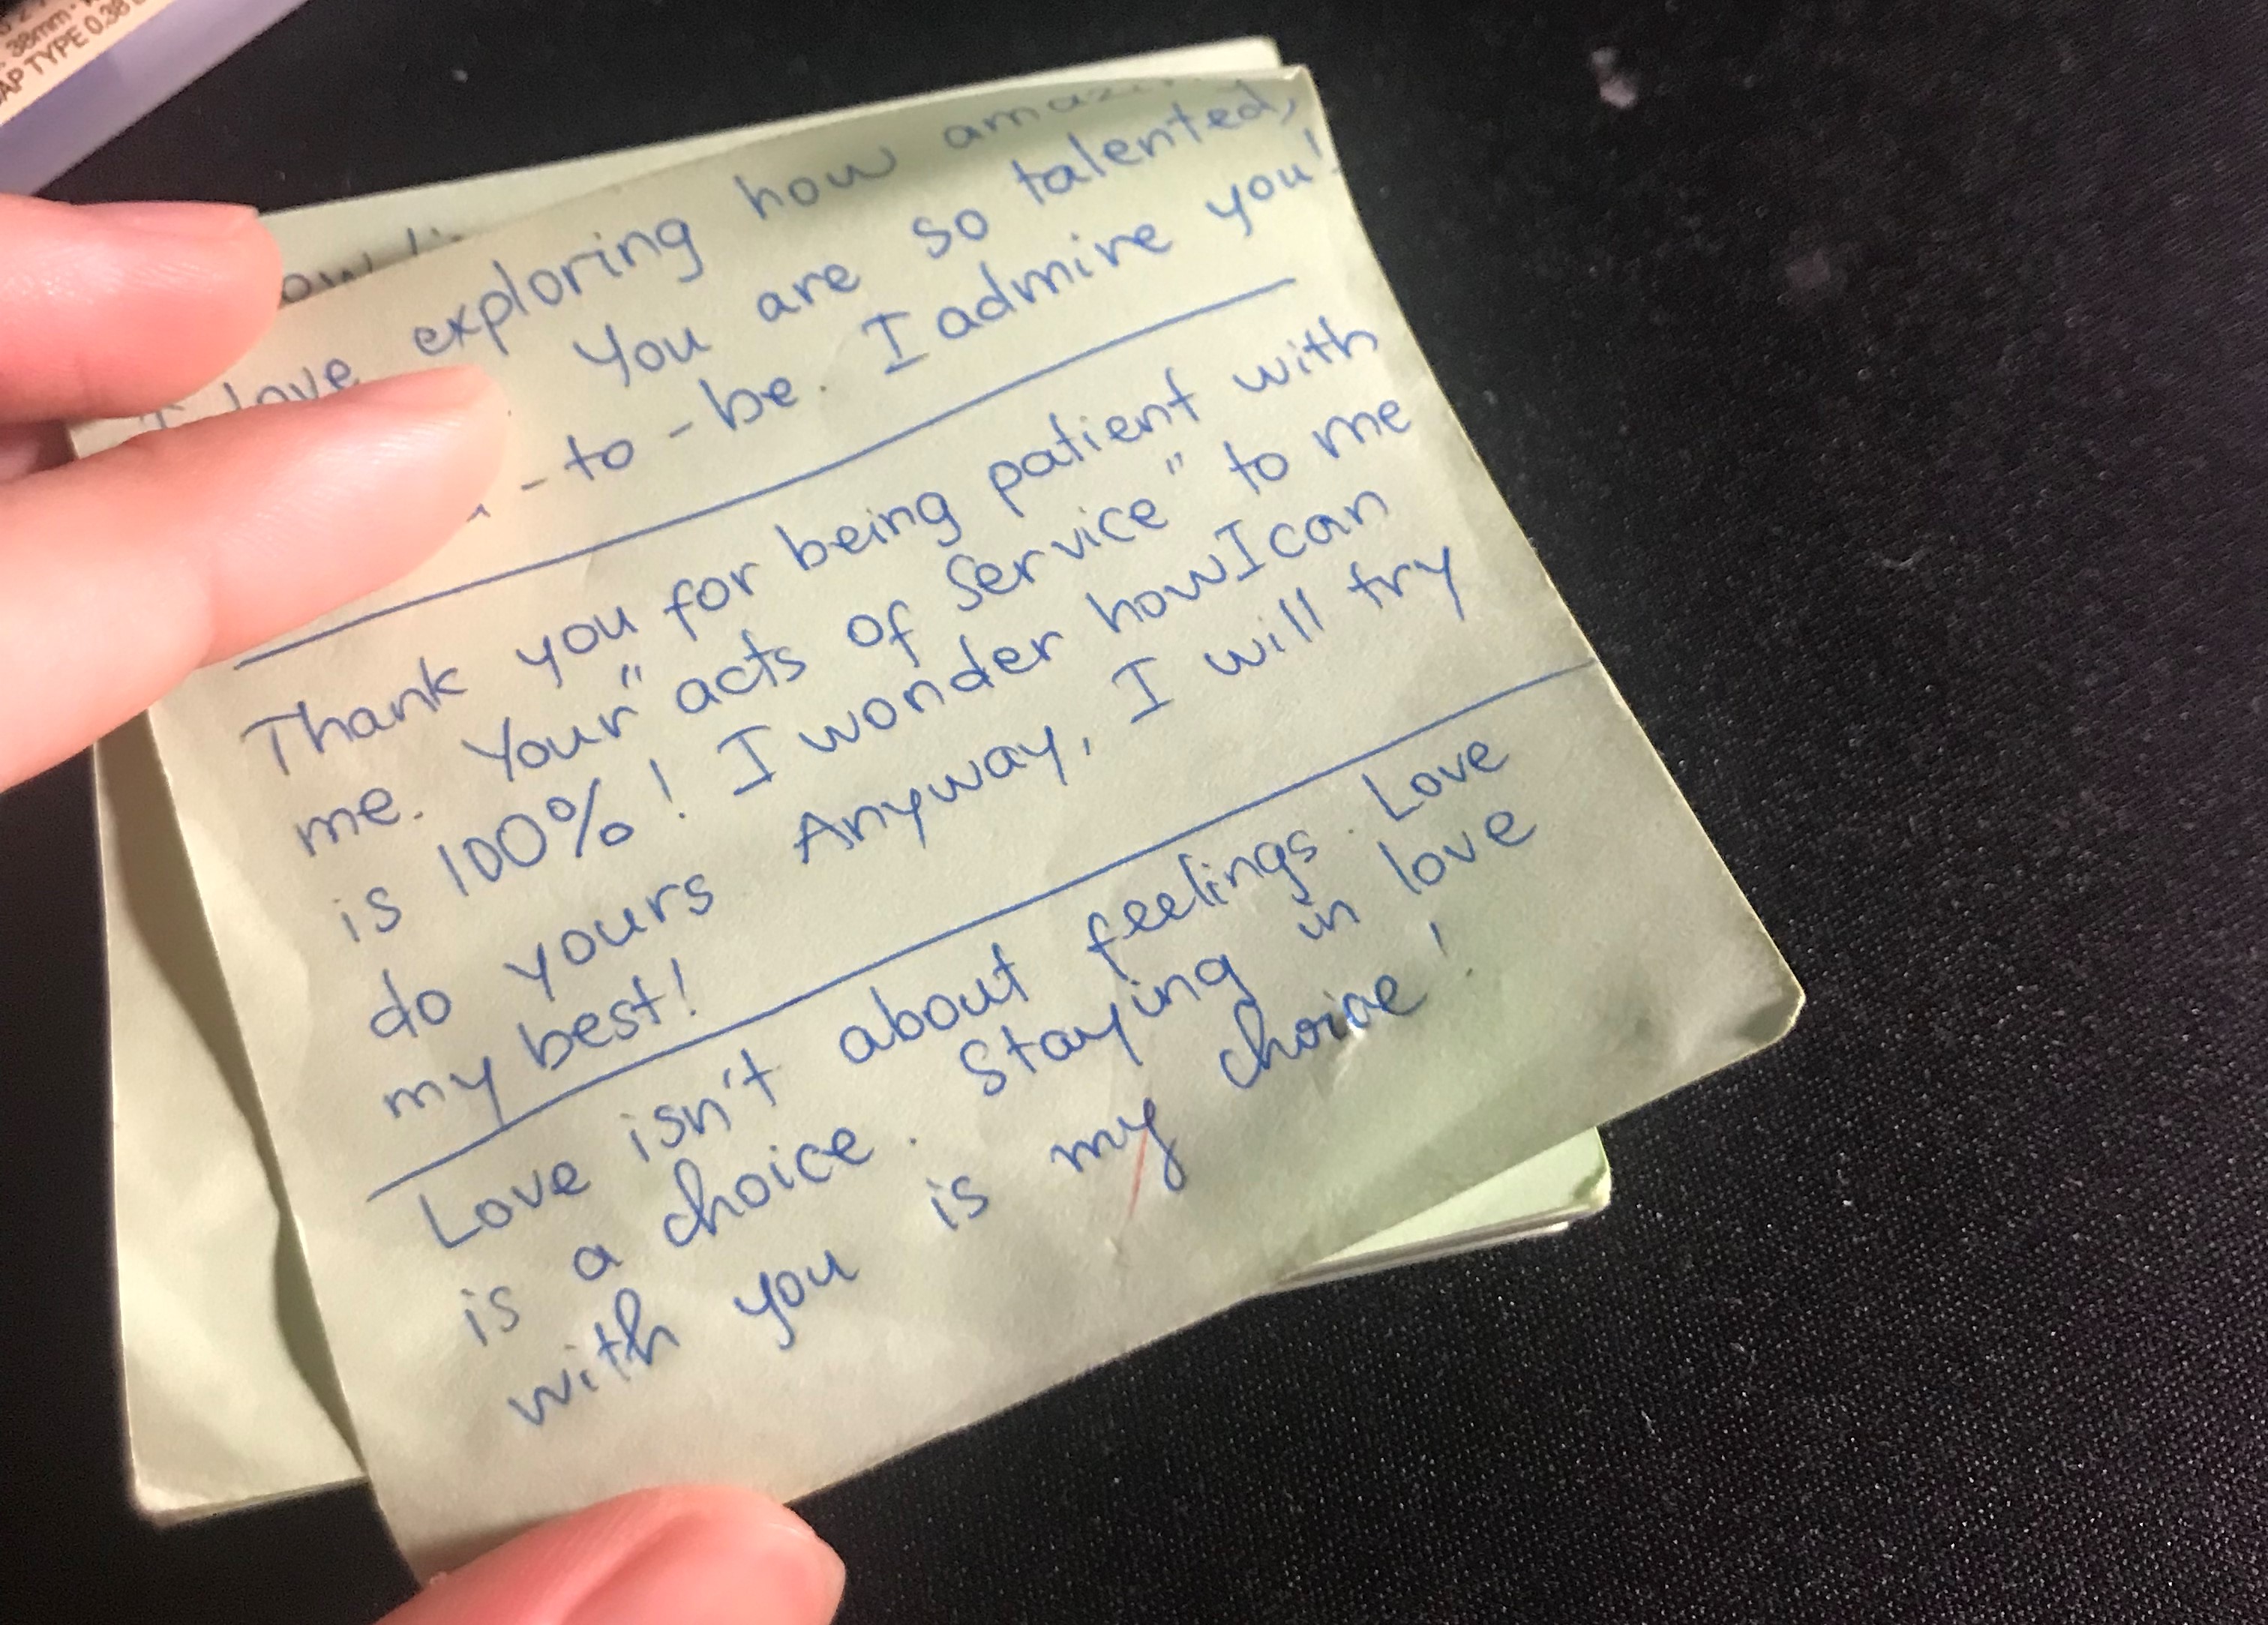 38mm
AP TYPE 0.38
love exploring how
You are so talented,
- to - be. I admire you!
Thank you for being patient with
me. Your "acts of Service" to me
is 100%! I wonder how I can
do yours. Anyway, I will try
my best!
Love isn't about feelings. Love
is a choice. Staying in love
with you is my choice!